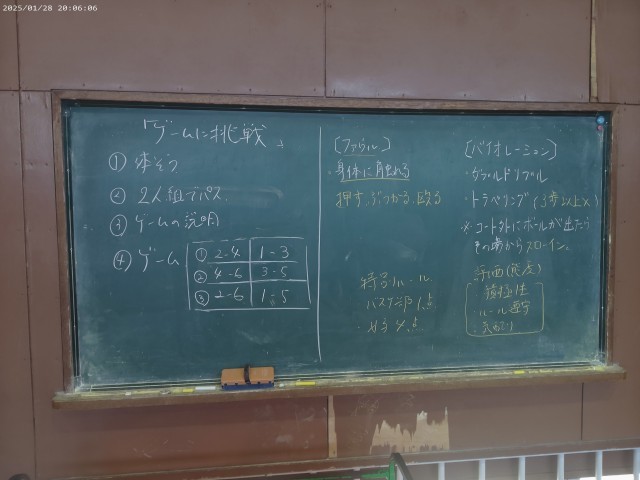 2025/01/28 20:06:06
「ゲームに挑戦」
① 体そう
② 2人組でパス
③ ゲームの説明
④ ゲーム
① 2-4 1-3
② 4-6 3-5
③ 2-6 1-5
[ファウル]
・身体に触れる
押す、ぶつかる、殴る
特号ルール
バスケ部 1点
・女子 4点
[バイオレーション]
・ダブルドリブル
・トラベリング (3歩以上×)
※コート外にボールが出たら
その場からスローイン。
評価(態度)
積極性
・ルール遵守